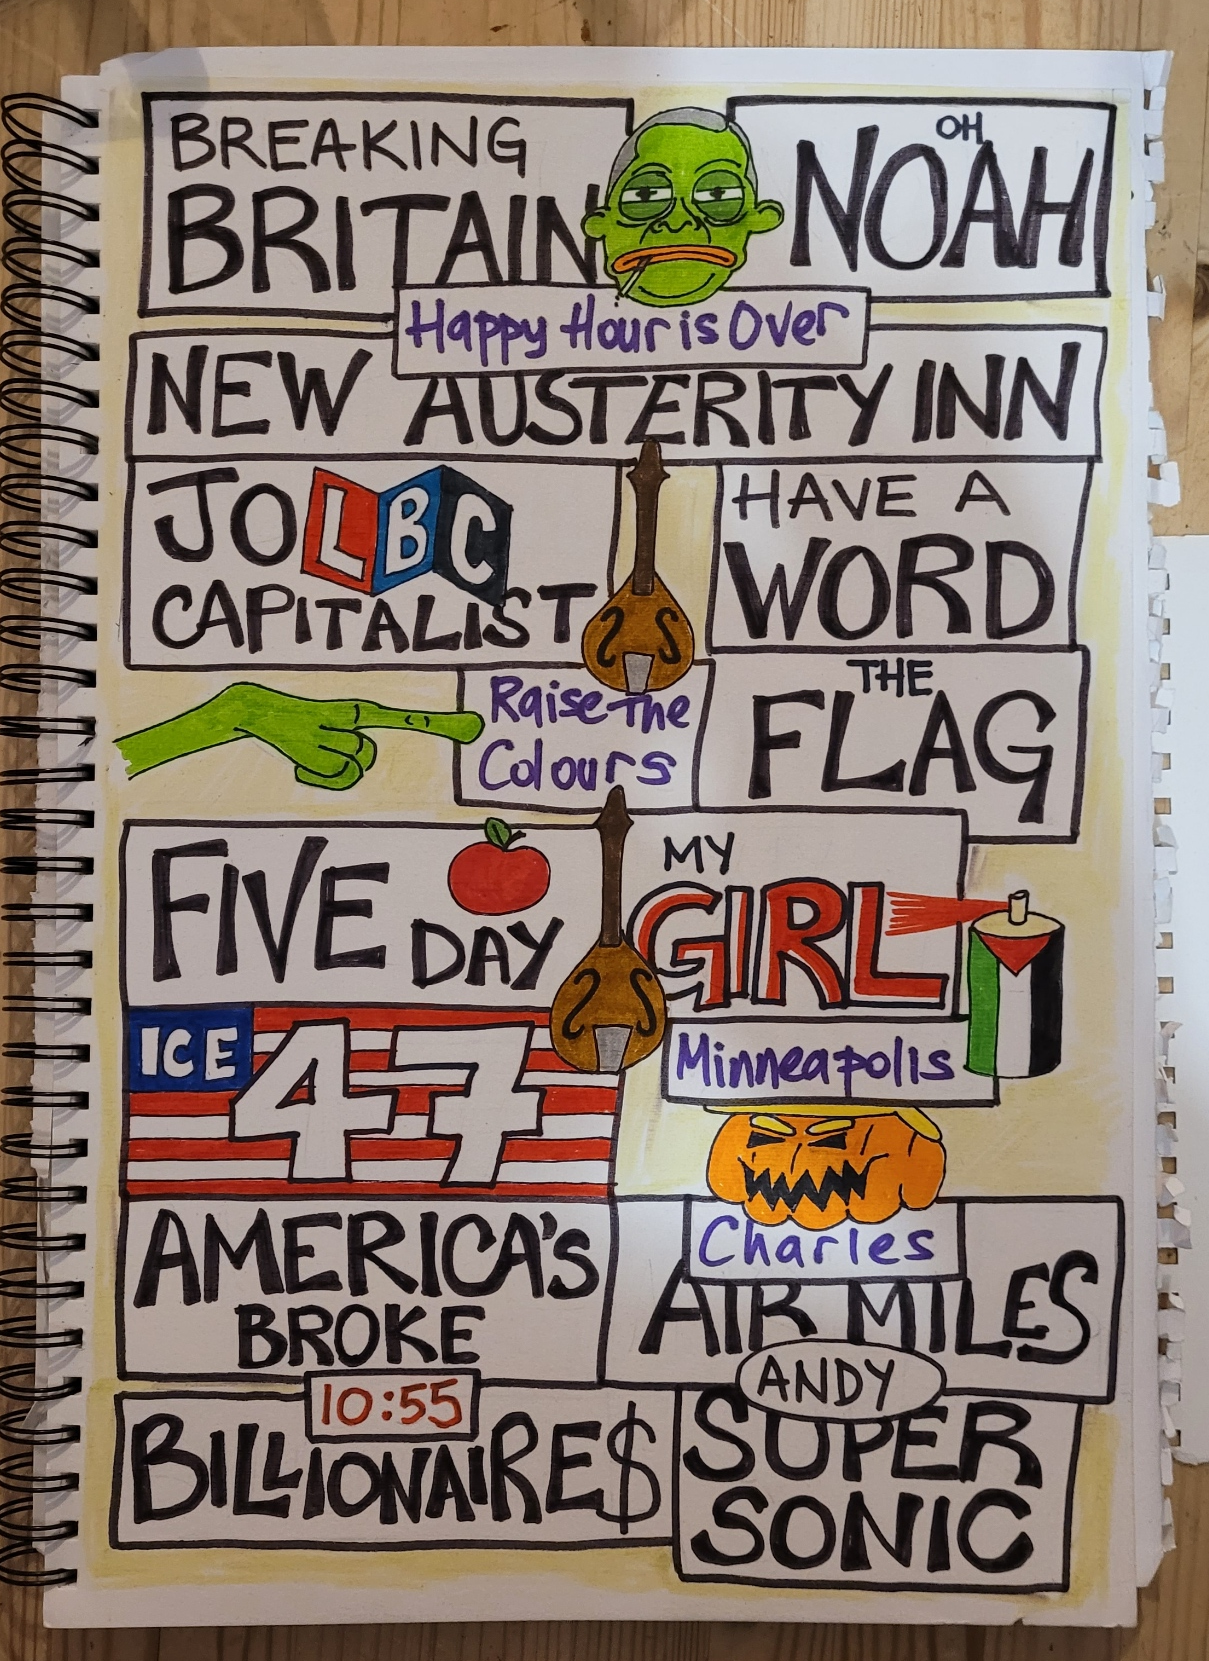 BREAKING
BRITAIN
OH
NOAH
Happy Hour is Over
NEW AUSTERITY INN
JO LBC
CAPITALIST
HAVE A
WORD
Raise The
Colours
THE
FLAG
FIVE
DAY
MY
GIRL
ICE
47
Minneapolis
AMERICA'S
BROKE
Charles
AIR MILES
ANDY
10:55
BILLIONAIRE$
SUPER
SONIC